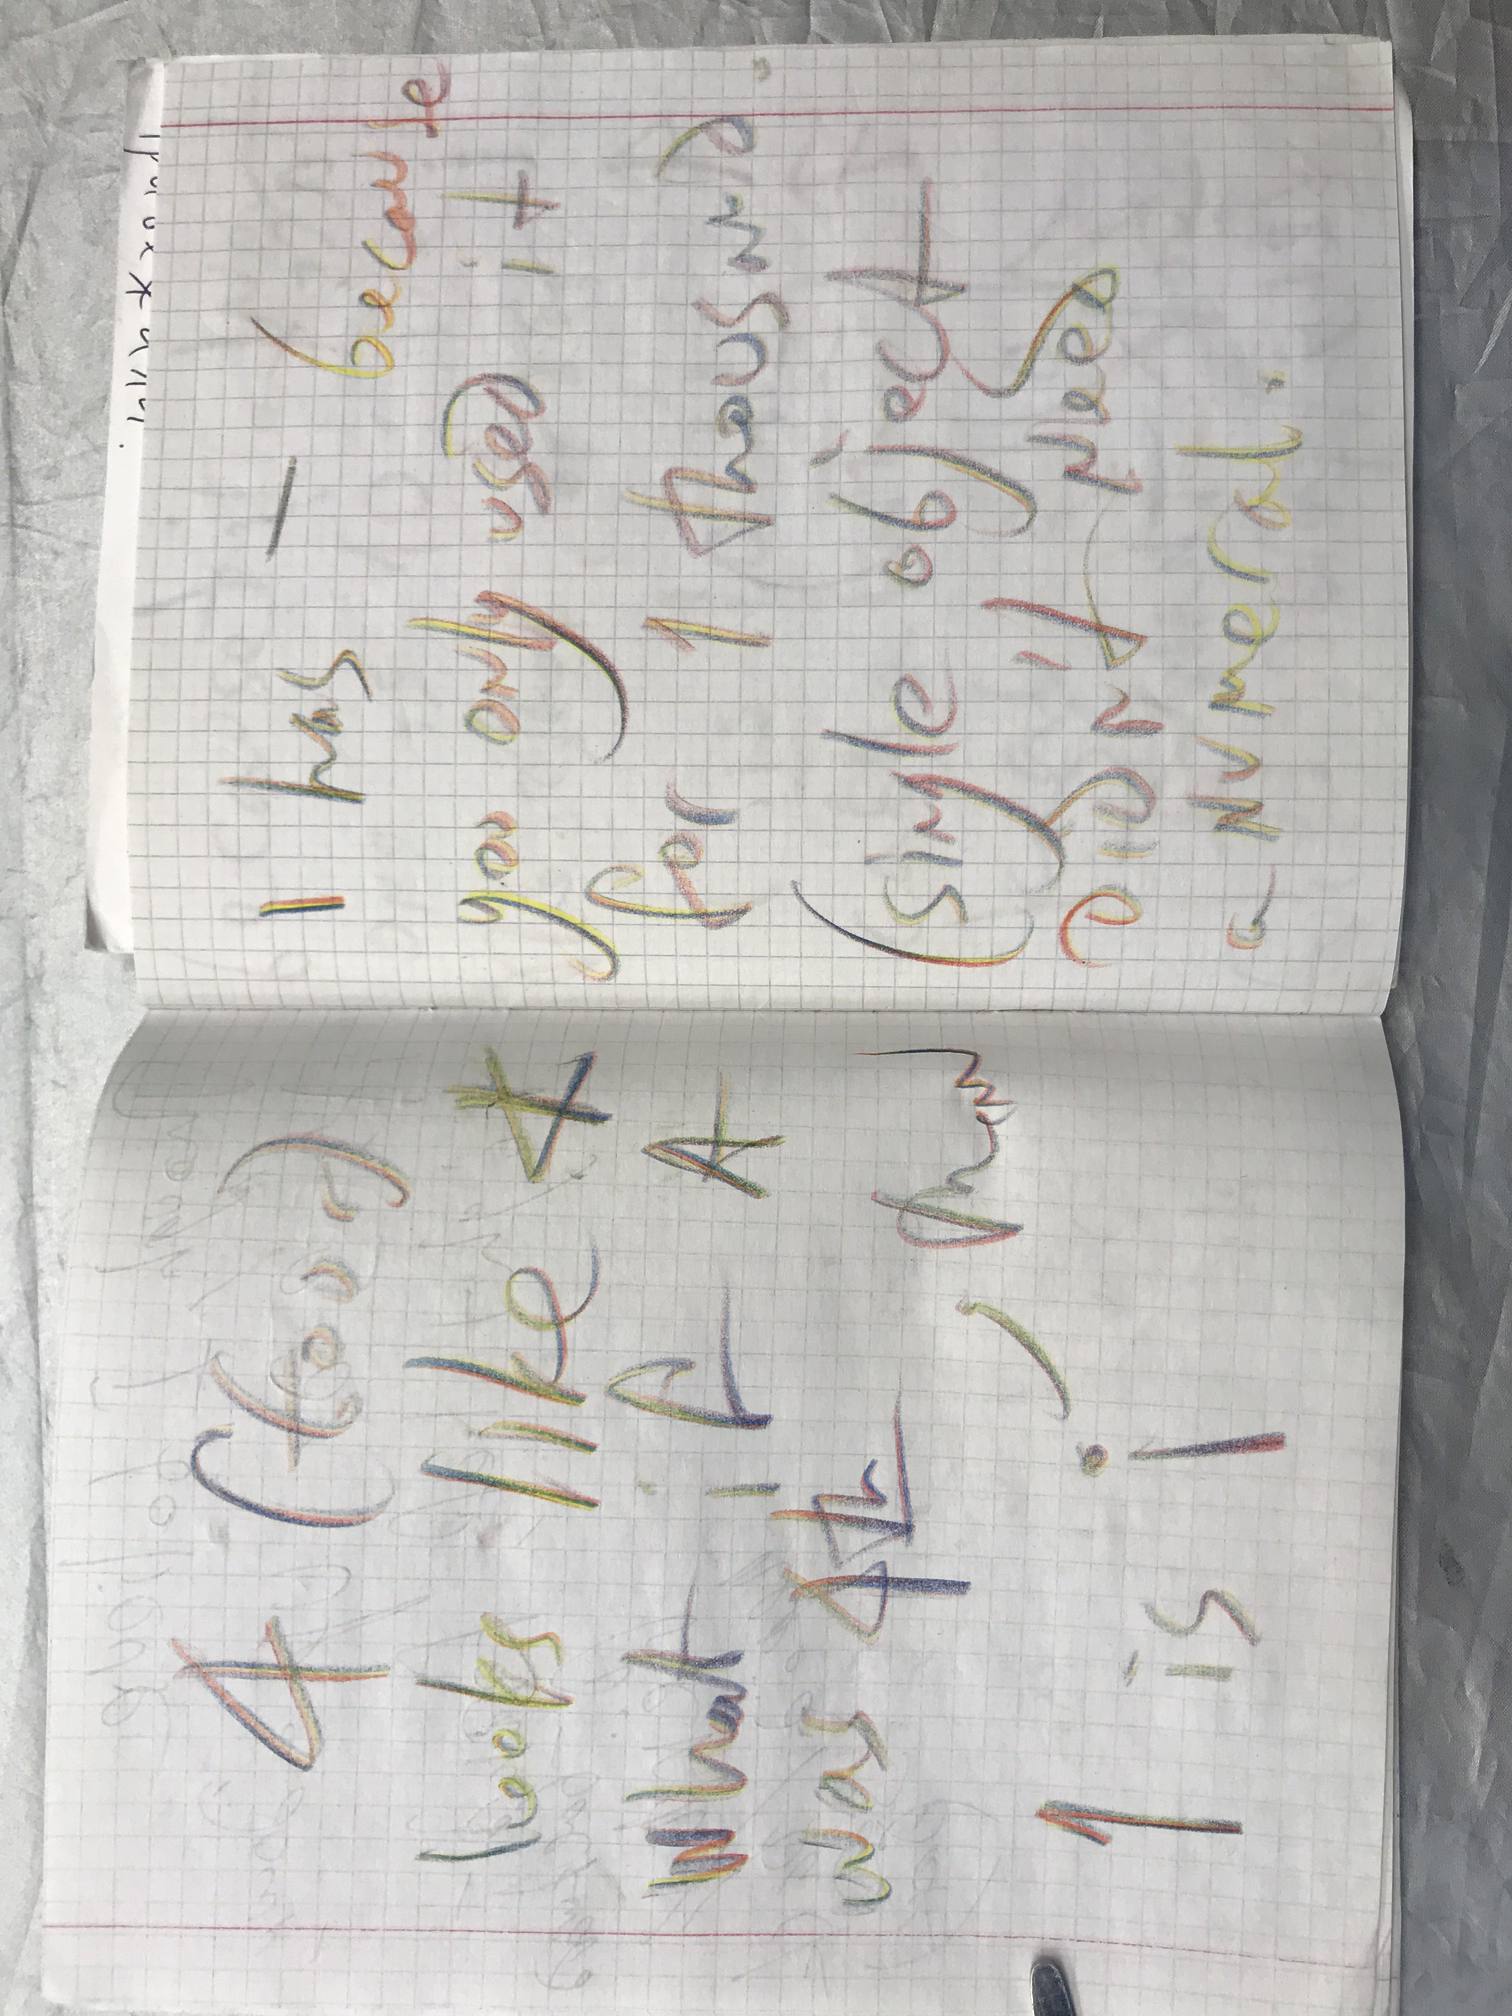 4 (four)
looks like 4
What if A
was
1 is i
1 has — because
you only useD it
for 1 thousND.
(single object)
DiDN't NeeD
a NUmeral.